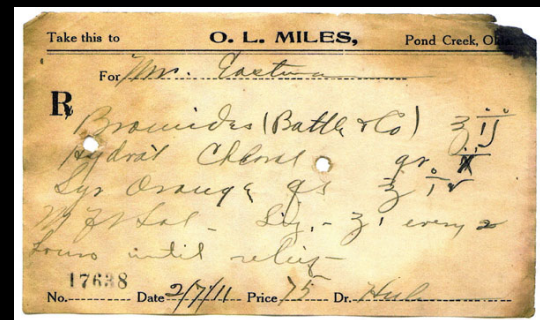 Take this to O. L. MILES, Pond Creek, Okla.
For Mr.
R Bromides (Battle & Co) ʒ ij
Hydrat Chloral gr
Syr Orange qs ℥ iv
Sig. - ʒ i every 2
hours until relief
17638
No. Date 2/7/11 Price 75 Dr.